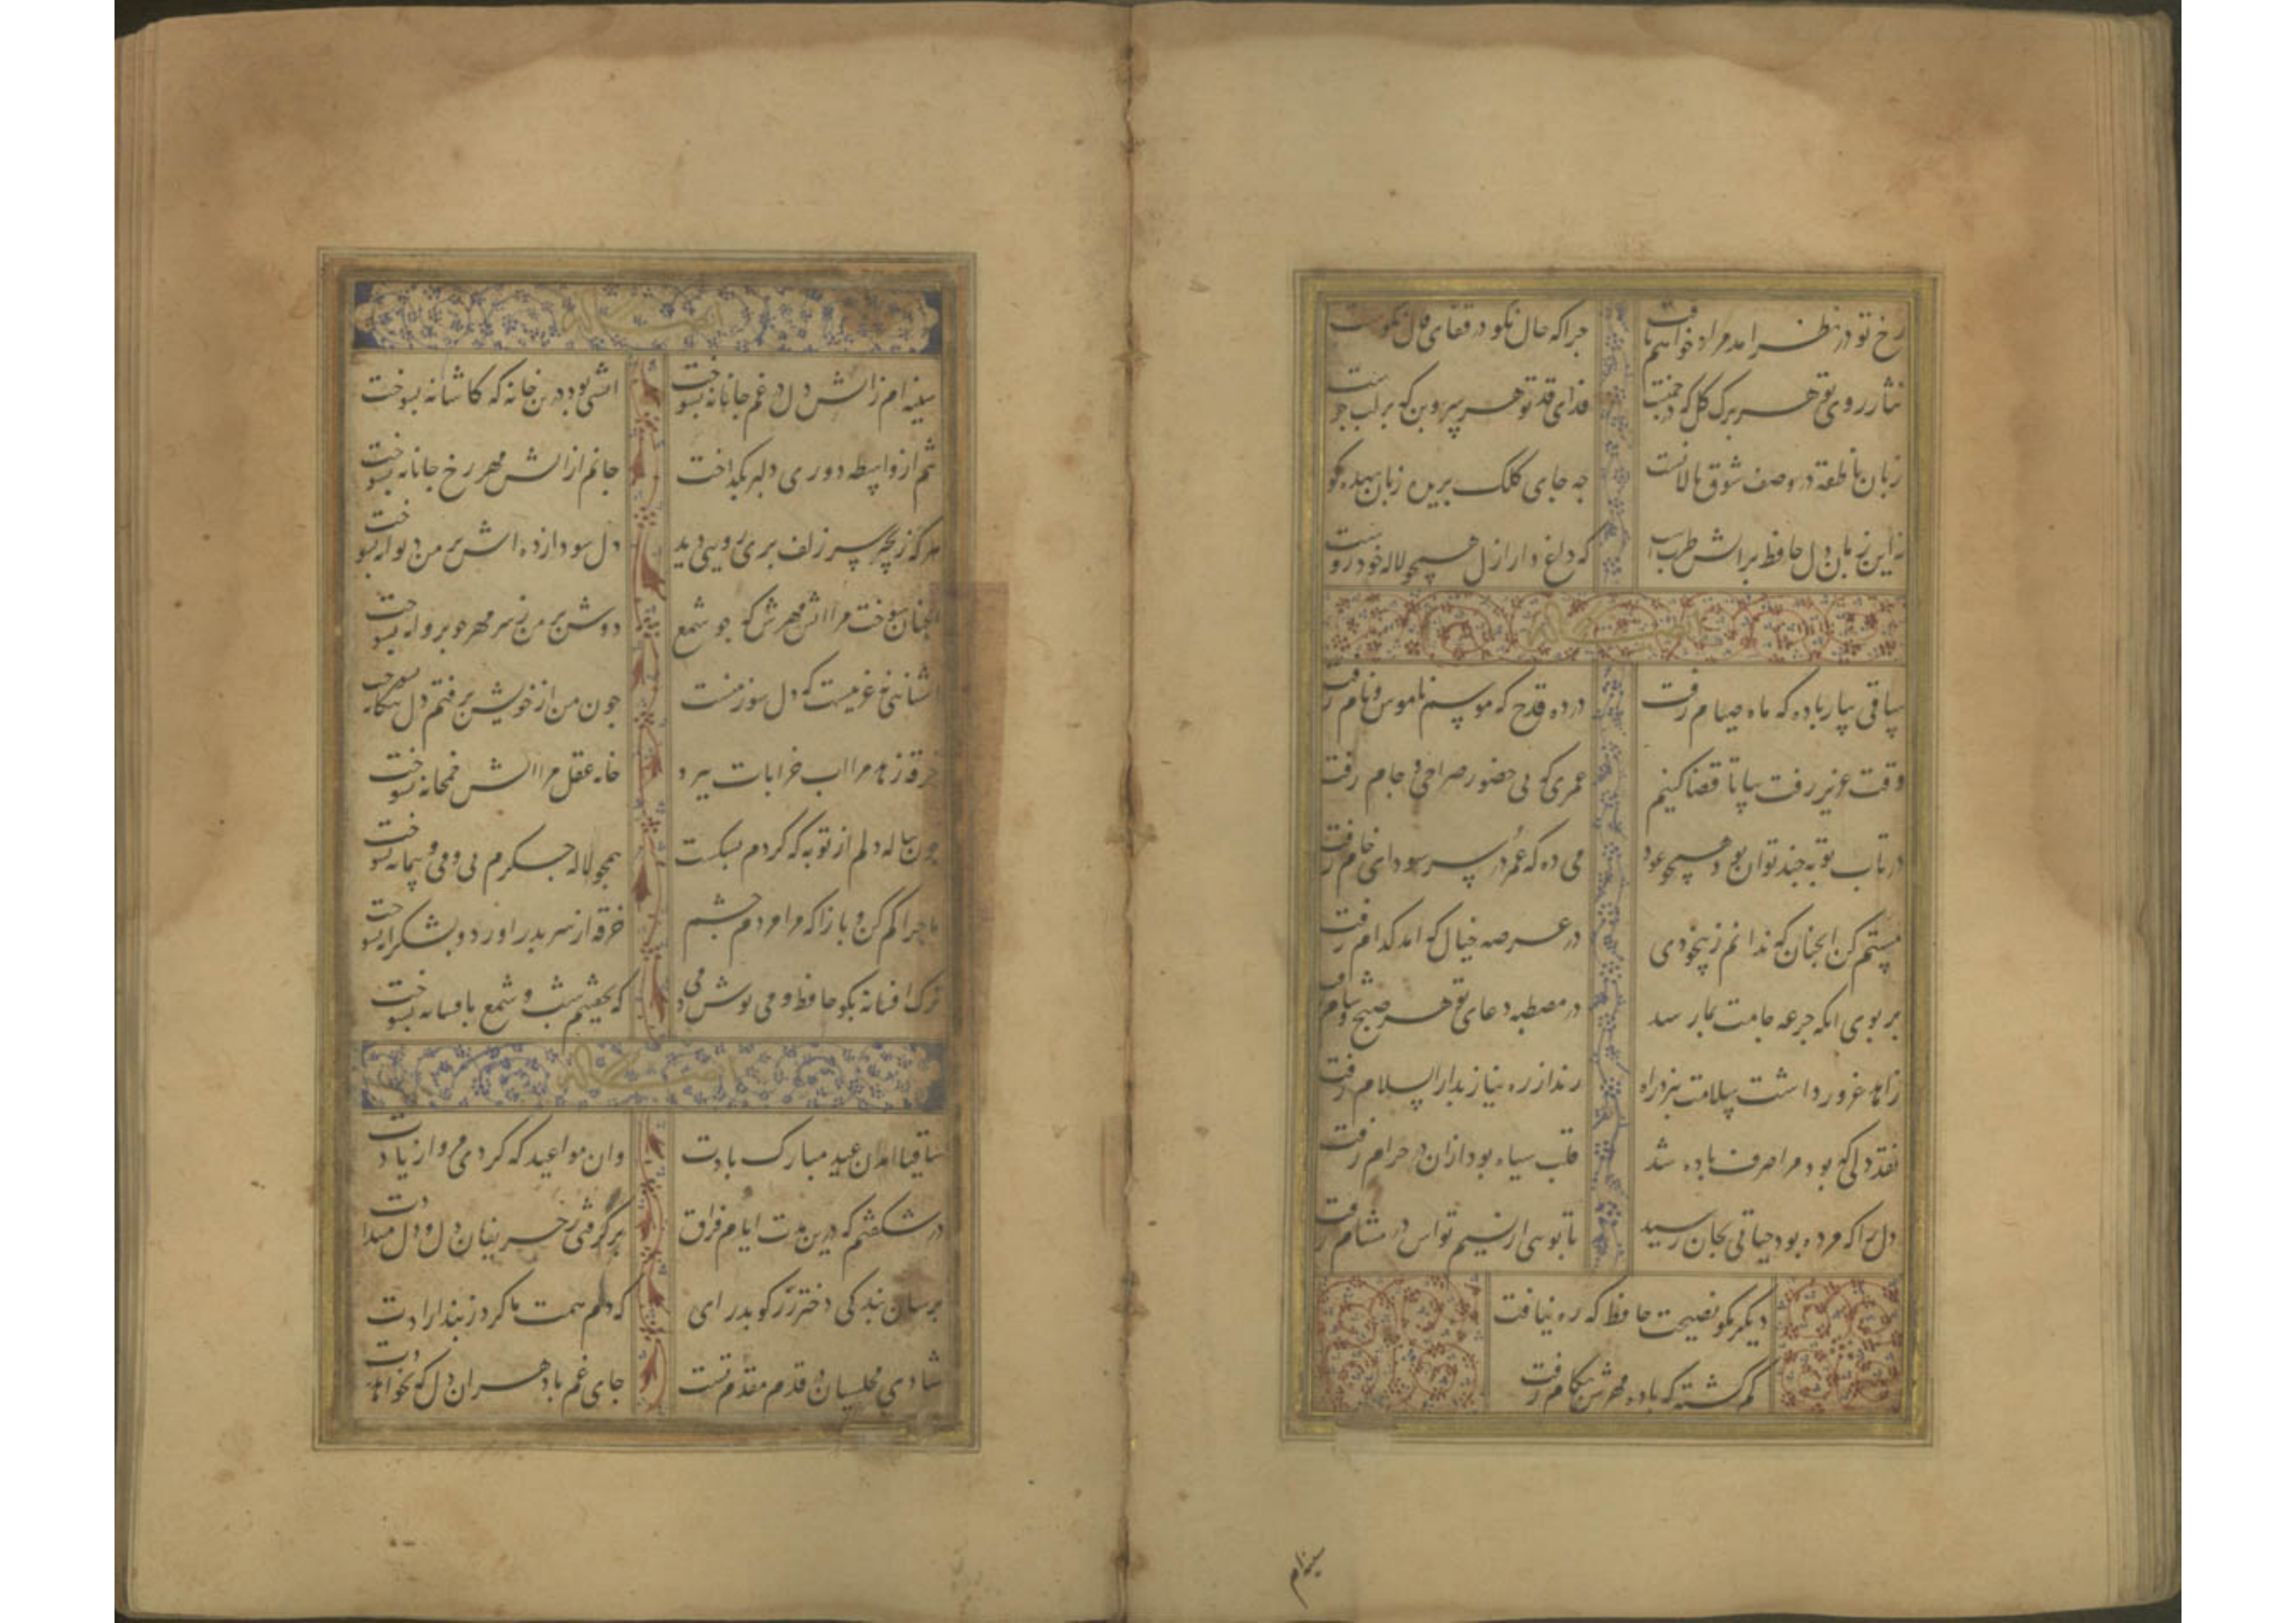 رخ تو در نظر امد مراد خواهم یافت
چرا که حال نکو در قفای فال نکوست
نثار روی تو هر برک کل که در چمنست
فدای قد تو هر سروبن که بر لب جوست
زبان ناطقه در وصف شوق ما لالست
چه جای کلک بریده زبان بیهده کوست
نه این زمان دل حافظ بر اتش طربست
که داغ دار ازل همچو لاله خودروست
ساقی بیار باده که ماه صیام رفت
درده قدح که موسم ناموس و نام رفت
وقت عزیز رفت بیا تا قضا کنیم
عمری که بی حضور صراحی و جام رفت
در تاب توبه چند توان بود همچو عود
می ده که عمر در سر سودای خام رفت
مستم کن انچنان که ندانم ز بیخودی
در عرصه خیال که امد کدام رفت
بر بوی انکه جرعه جامت بما رسد
در مصطبه دعای تو هر صبح و شام رفت
زاهد غرور داشت سلامت نبرد راه
رند از ره نیاز بدار السلام رفت
نقد دلی که بود مرا صرف باده شد
قلب سیاه بود ازان در حرام رفت
دل را که مرده بود حیاتی بجان رسید
تا بویی از نسیم تواش در مشام رفت
دیکر مکو نصیحت حافظ که ره نیافت
کم کشته که باده مهرش بکام رفت
سینه ام
سینه ام ز اتش دل در غم جانانه بسوخت
اتشی بود درین خانه که کاشانه بسوخت
تنم از واسطه دوری دلبر بکداخت
جانم از اتش مهر رخ جانانه بسوخت
هر که زنجیر سر زلف پری رویی دید
دل سودازده اش بر من دیوانه بسوخت
انچنان سوخت مرا اتش مهرش که چو شمع
دوش بر من ز سر مهر چو پروانه بسوخت
اشنایی نه غریبست که دل سوز منست
چون من از خویش برفتم دل بیکانه بسوخت
خرقه زهد مرا اب خرابات ببرد
خانه عقل مرا اتش خمخانه بسوخت
چون پیاله دلم از توبه که کردم بشکست
همچو لاله جکرم بی می و پیمانه بسوخت
ماجرا کم کن و بازا که مرا مردم چشم
خرقه از سر بدر اورد و بشکرانه بسوخت
ترک افسانه بکو حافظ و می نوش دمی
که نخفتیم شب و شمع بافسانه بسوخت
ساقیا امدن عید مبارک بادت
وان مواعید که کردی مرو از یادت
در شکفتم که درین مدت ایام فراق
بر کرفتی ز حریفان دل و دل میدادت
برسان بندکی دختر رز کو بدر ای
که دم همت ما کرد ز بند ازادت
شادی مجلسیان در قدم مقدم تست
جای غم باد هر ان دل که نخواهد شادت